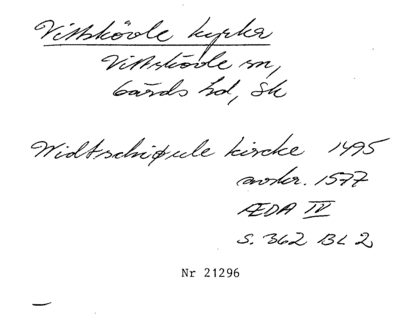 Vittskövle kyrka
Vittskövle sn,
Gärds hd, Sk
Widtschiøule kircke 1495
avskr. 1577
ÆDA IV
S. 362 BL 2
Nr 21296